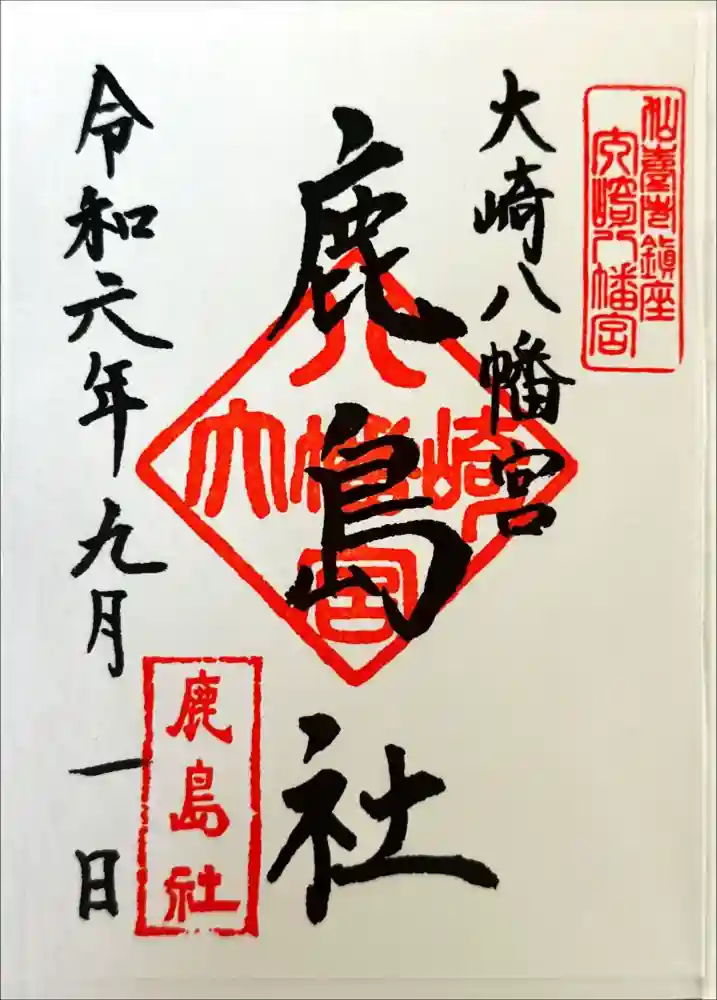 仙臺市鎮座
大崎八幡宮
大崎八幡宮
鹿島社
大崎八幡宮
令和六年九月一日
鹿島社